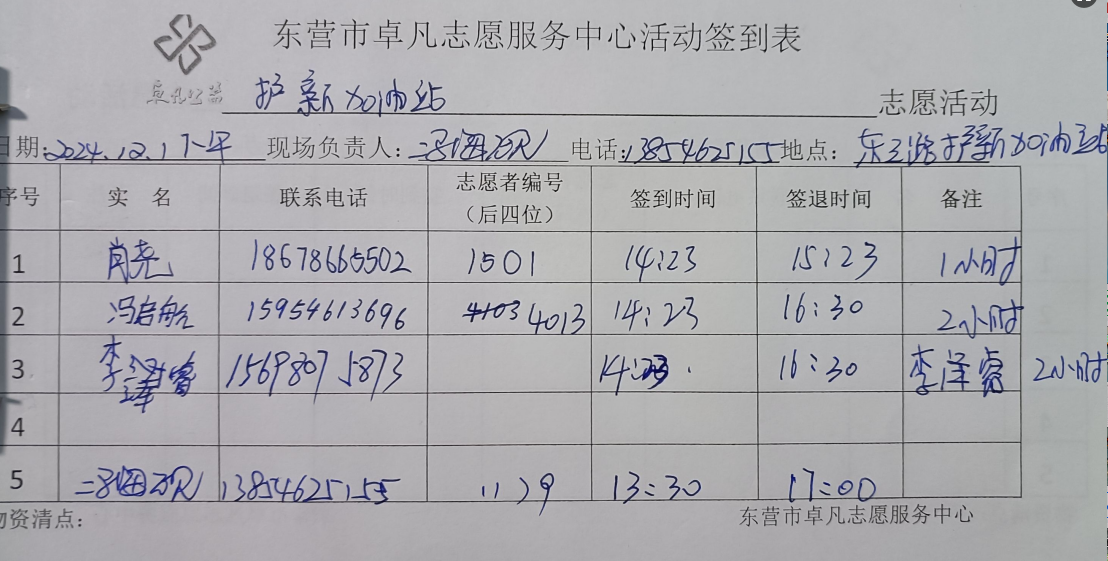 东营市卓凡志愿服务中心活动签到表
卓凡公益 护新加油站 志愿活动
日期:2024.12.1下午 现场负责人: 电话:13854625155 地点: 东三路护新加油站
序号 实 名 联系电话 志愿者编号（后四位） 签到时间 签退时间 备注
1 肖尧 18678665502 1501 14:23 15:23 1小时
2 冯启航 15954613696 4103 4013 14:23 16:30 2小时
3 李泽睿 15698075873 14:23 16:30 李泽睿 2小时
4
5 13854625155 1129 13:30 17:00
物资清点： 东营市卓凡志愿服务中心